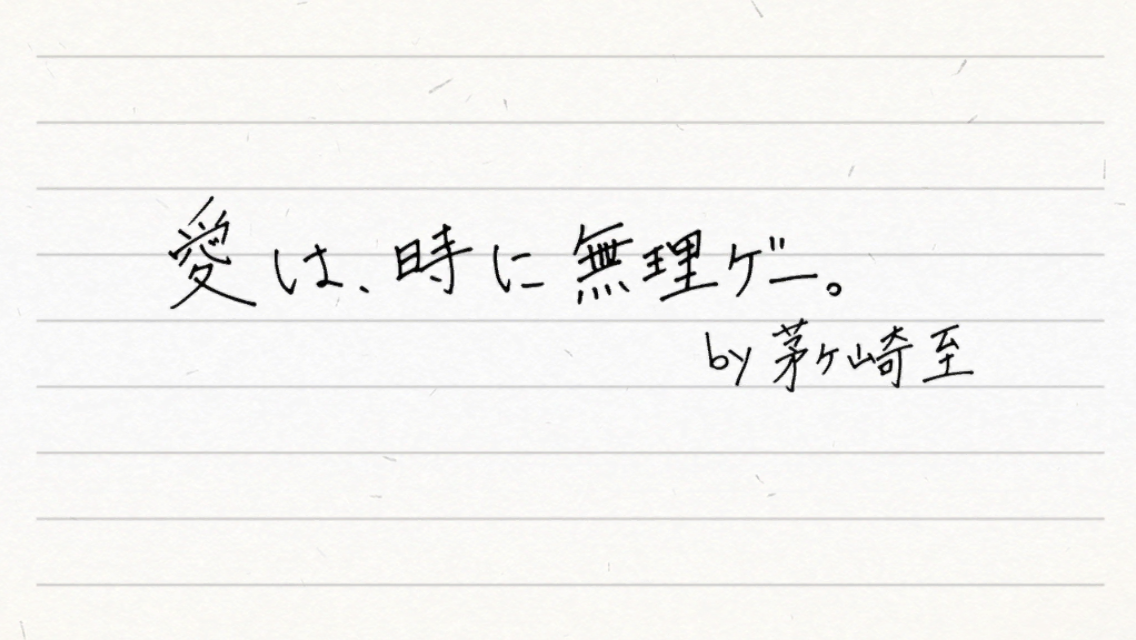 愛は、時に無理ゲー。
by 茅ヶ崎 至